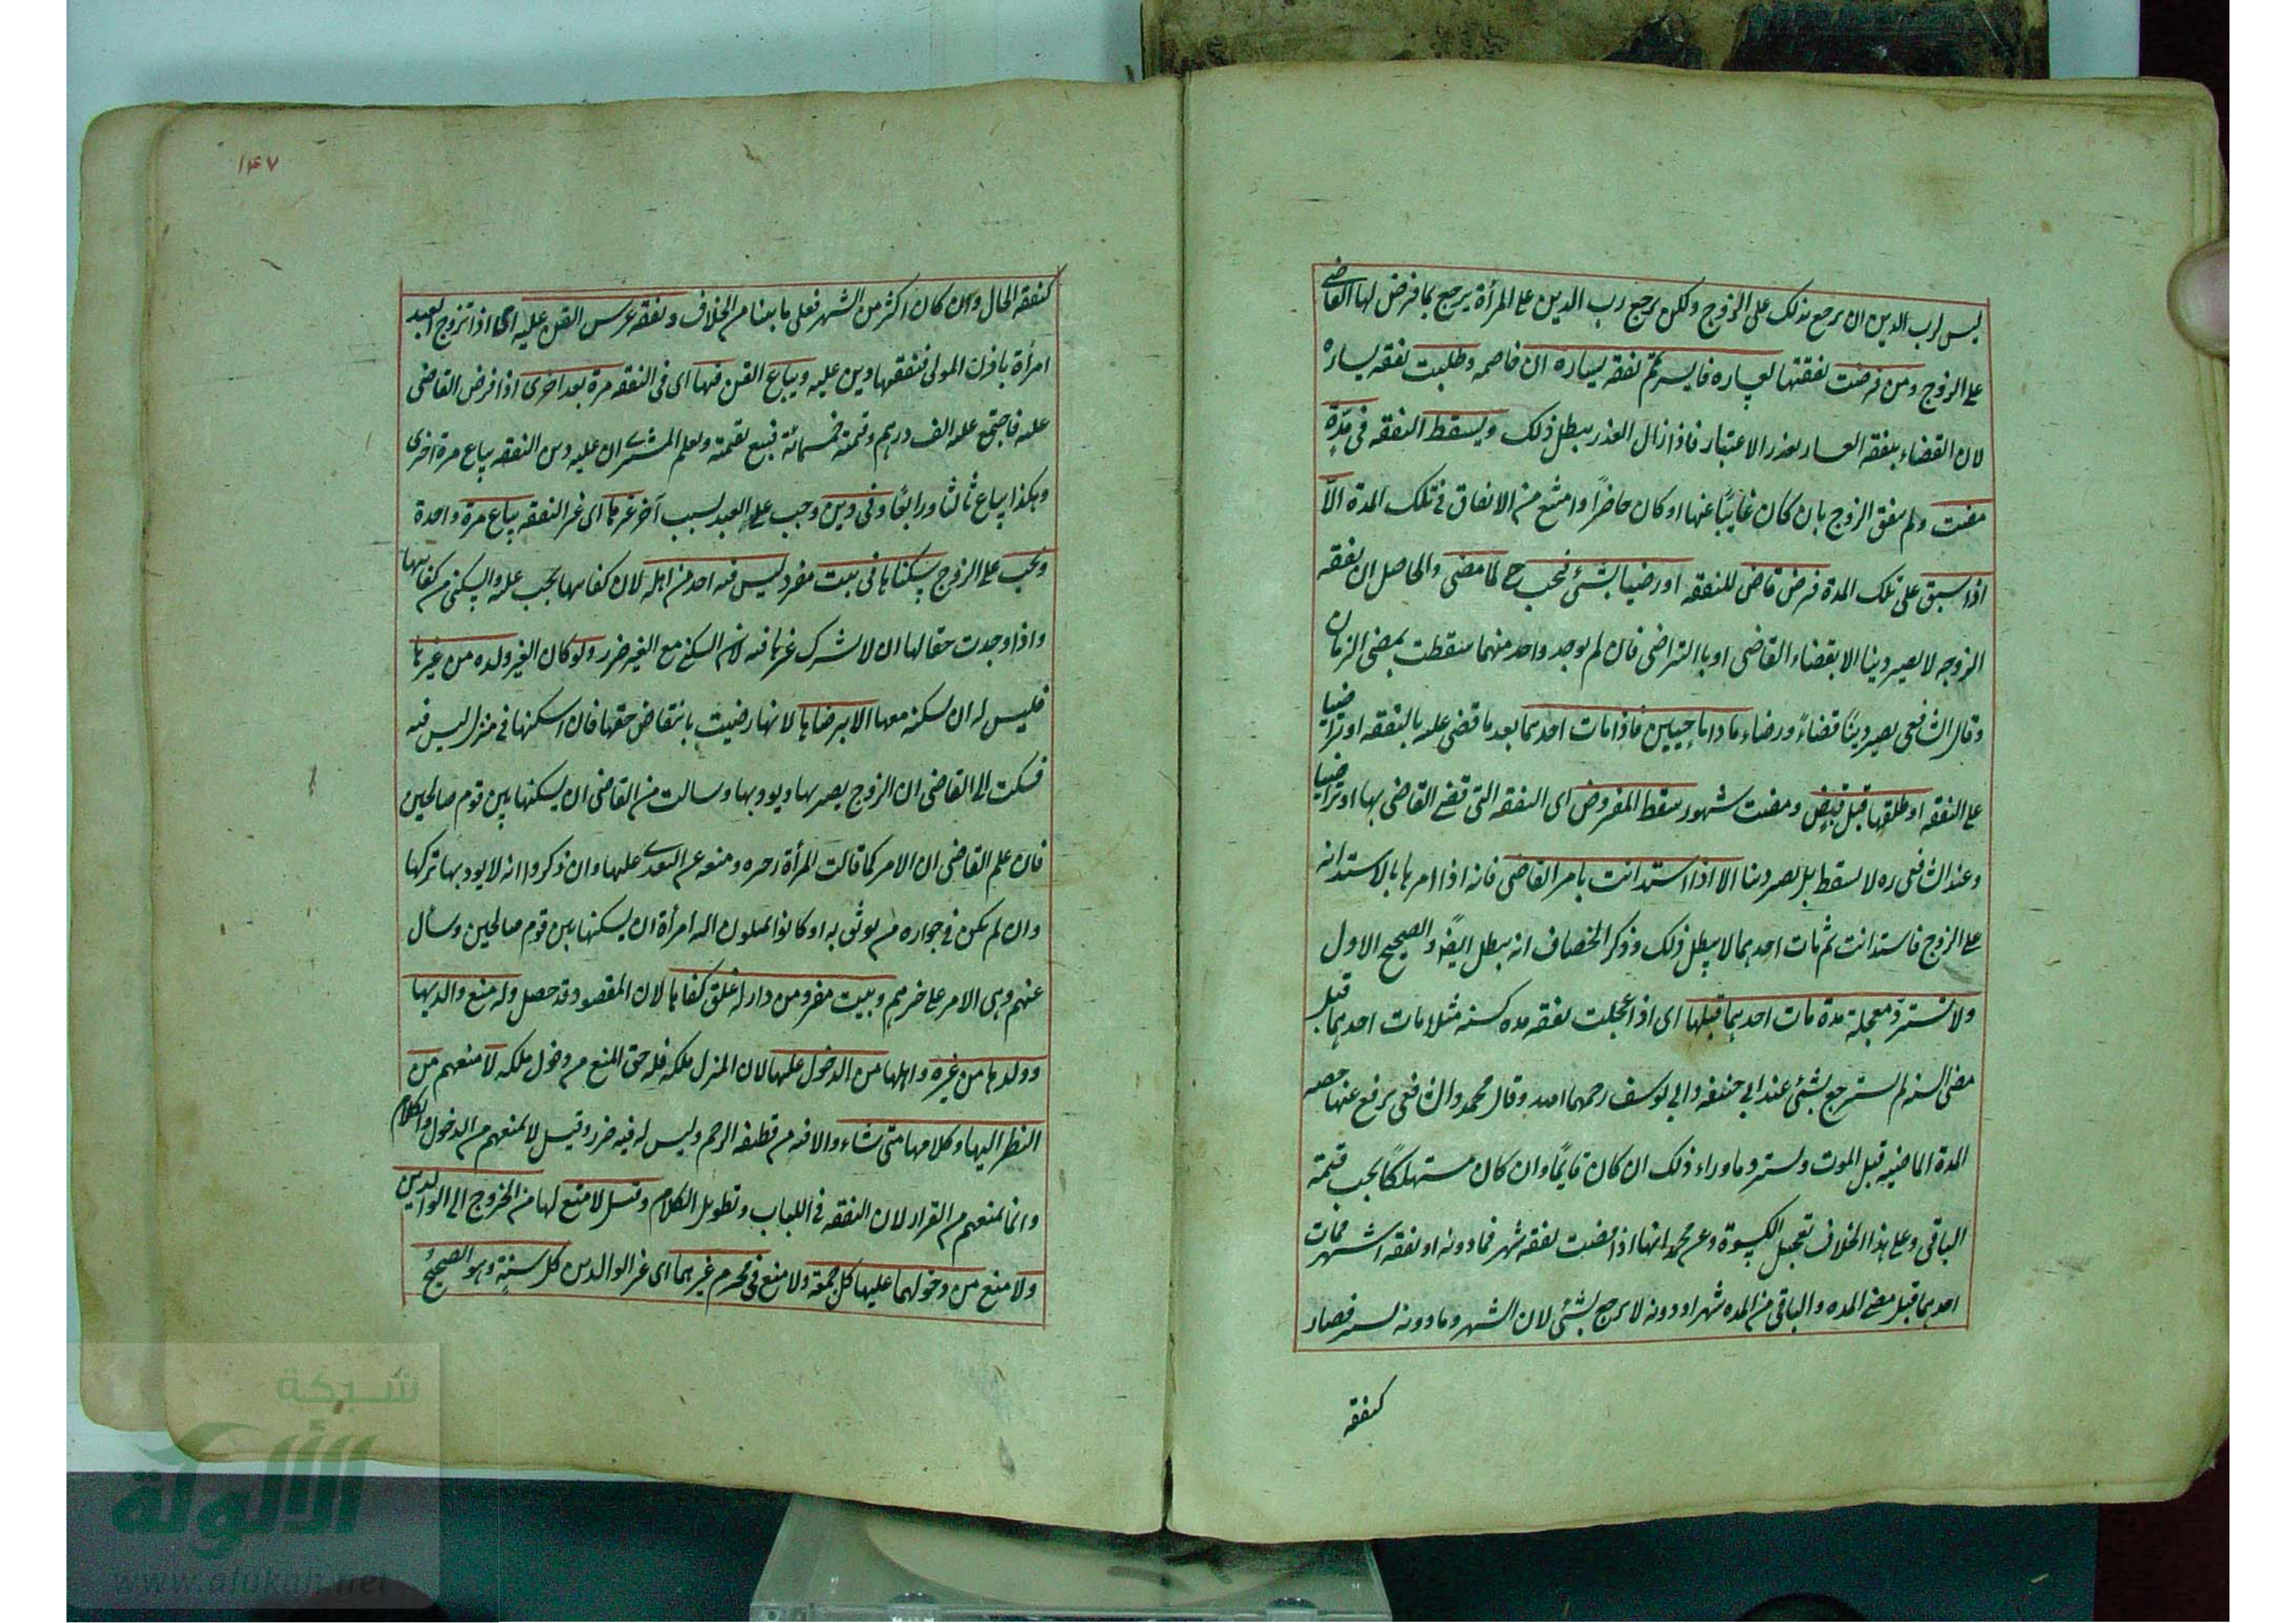 ليس لرب الدين ان يرجع بذلك على الزوج ولكن يرجع رب الدين على المرأة يرجع بما فرض لها القاضي
على الزوج ومن فرضت نفقتها لعساره فايسر تتم نفقه يساره ان خاصمه وطلبت نفقه يساره
لان القضاء بنفقه العسار بعذر الاعتبار فاذا زال العذر يبطل ذلك ويسقط النفقه في مدة
مضت ولم ينفق الزوج بان كان غايبًا عنها او كان حاضرًا وامتنع من الانفاق في تلك المدة الا
اذا سبق على تلك المدة فرض قاض للنفقه او رضيا بشئ فيجب ح لما مضى والحاصل ان نفقه
الزوجه لا يصير دينا الا بقضاء القاضي او بالتراضي فان لم يوجد واحد منهما سقطت بمضي الزمان
وقال الشافعي يصير دينًا قضاءً ورضاء ما داما حيين فاذا مات احدهما بعد ما قضى عليه بالنفقه او تراضيا
على النفقه او طلقها قبل قبض ومضت شهور سقط المفروض اي النفقه التي قضى القاضي بها او تراضيا
وعند الشافعي ره لا يسقط بل يصير دينا الا اذا استدانت بامر القاضي فانه اذا امرها بالاستدانه
على الزوج فاستدانت ثم مات احدهما لا يبطل ذلك وذكر الخصاف انه يبطل ايضًا والصحيح الاول
ولا تسترد معجلة مدة مات احدهما قبلها اي اذا عجلت نفقه مده كسنه مثلا مات احدهما قبل
مضى السنه لم يسترجع بشئ عند ابي حنيفه وابي يوسف رحمهما الله وقال محمد والشافعي يرفع عنها حصه
المدة الماضيه قبل الموت ويسترد ما وراء ذلك ان كان قايمًا وان كان مستهلكًا يجب قيمة
الباقي وعلى هذا الخلاف تعجيل الكسوة وعن محمد انها اذا قبضت نفقه شهر فما دونه او نفقه اشهر فمات
احدهما قبل مضى المده والباقي من المده شهر او دونه لا يرجع بشئ لان الشهر وما دونه يسير فصار
كنفقه
١٤٧
كنفقه الحال وان كان اكثر من الشهر فعلى ما بينا من الخلاف ونفقه عرس القن عليه اذا تزوج العبد
امرأة باذن المولى فنفقتها دين عليه ويباع القن فيها اي في النفقه مرة بعد اخرى اذا فرض القاضي
عليه فاجتمع عليه الف درهم وقيمته خمسمائة فبيع بقيمته ويعلم المشتري ان عليه دين النفقه يباع مرة اخرى
وهكذا يباع ثالثا ورابعًا وفي دين وجب على العبد بسبب آخر غيرها اي غير النفقه يباع مرة واحدة
ويجب على الزوج سكناها في بيت مفرد ليس فيه احد من اهله لان كفايتها يجب عليه والسكنى من كفايتها
واذا وجدت حقا لها ان لا يشرك غيرها فيه لان السكنى مع الغير ضرر ولو كان الغير ولده من غيرها
فليس له ان يسكنه معها الا برضاها لانها رضيت بانتقاص حقها فان اسكنها في منزل ليس فيه
فشكت الى القاضي ان الزوج يضربها ويوذيها وسالت من القاضي ان يسكنها بين قوم صالحين
فان علم القاضي ان الامر كما قالت المرأة زجره ومنعه عن التعدي عليها وان ذكروا انه لا يوذيها تركها
وان لم يكن في جواره من يوثق به او كانوا يميلون اليه امرأة ان يسكنها بين قوم صالحين وسأل
عنهم وبنى الامر على خبرهم وبيت مفرد من دار له غلق كفاها لان المقصود قد حصل وله منع والديها
وولدها من غيره واهلها من الدخول عليها لان المنزل ملكه فله حق المنع من دخول ملكه لا منعهم من
النظر اليها وكلامها متى شاء والا فيه من قطيعه الرحم وليس له فيه ضرر وقيل لا يمنعهم من الدخول والكلام
وانما يمنعهم من القرار لان النفقه في اللباب وتطويل الكلام وقيل لا منع لها من الخروج الى الوالدين
ولا منع من دخولهما عليها كل جمعة ولا منع في محرم غيرهما اي غير الوالدين كل سنةٍ وهو الصحيح
شبكة
الألوكة
www.alukah.net